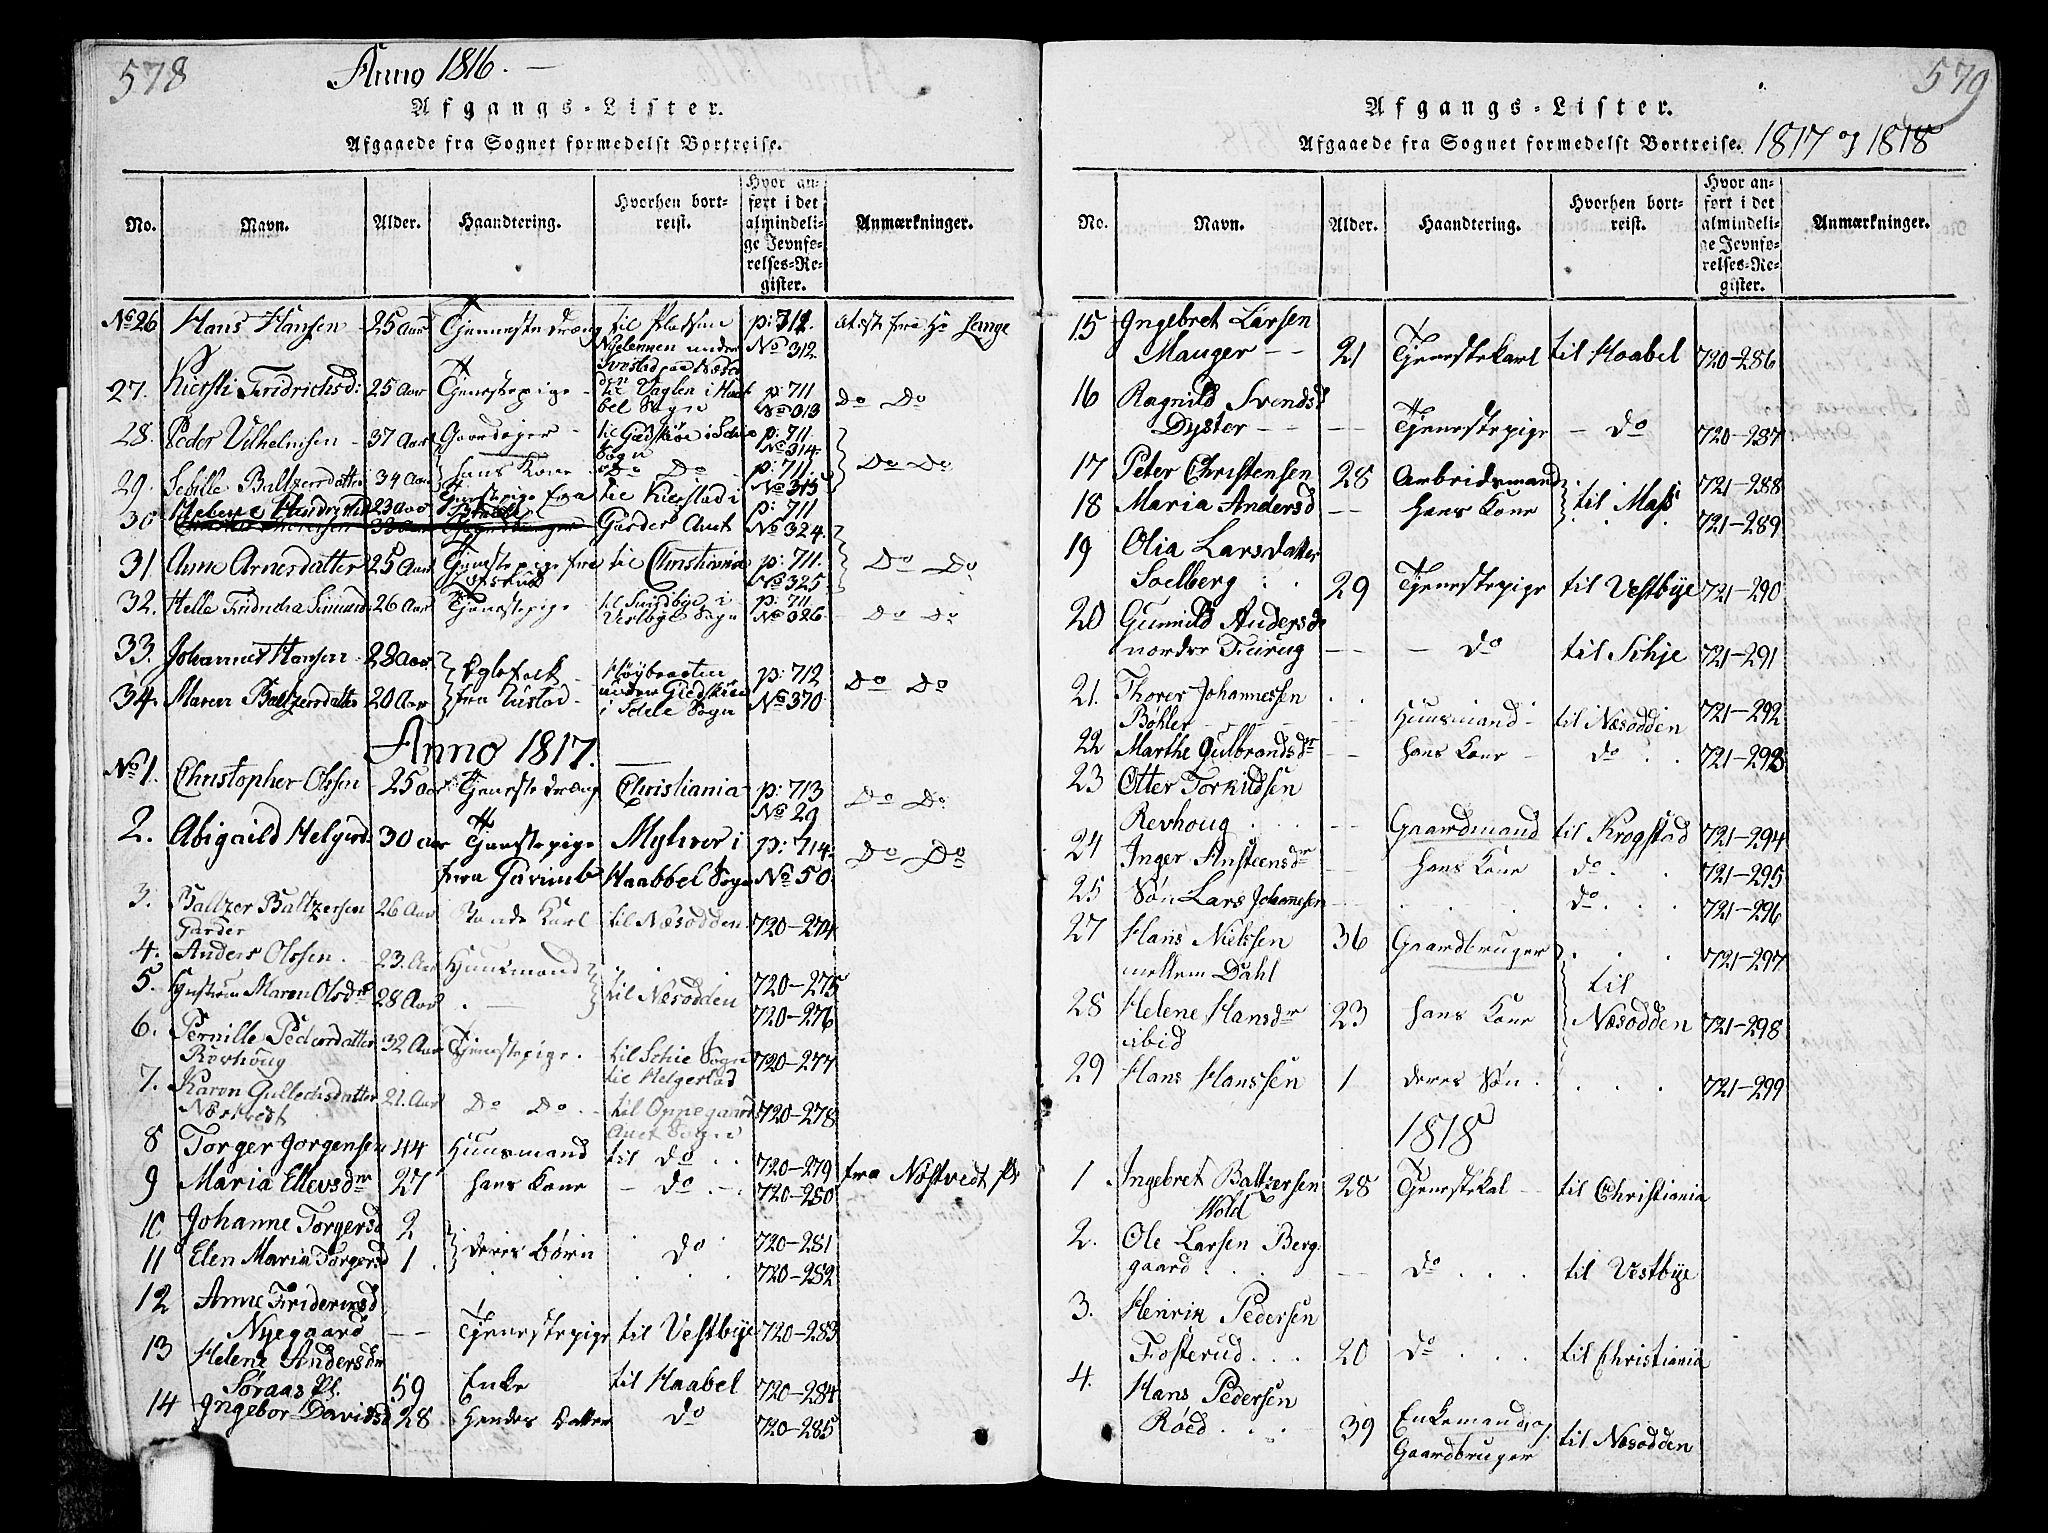 578
Anno 1816.
Afgangs-Lister.
Afgaaede fra Sognet formedelst Bortreise.
No. Navn. Alder. Haandtering. Hvorhen bortreist. Hvor anført i det almindelige Jevnførelses-Register. Anmærkninger.
No 26 Hans Hansen 25 Aar Tjenneste dreng til Pladsen p: 312. Attest fra Hr Lange
under No 312
27. Kiersti Fridrichsd: 25 Aar Tjenestepige til Vaglen i Haabel Sogn p: 711 No 313 Do Do
28. Peder Vilhelmsen 37 Aar Gaardejer p: 711 No 314 Do Do
29. Sebille Baltzersdatter 34 Aar hans Kone Do Do p: 711. No 315
30 Helene 23 Aar Tjenestepige fra til Kierstad i p: 711
33 Aar Garder Anet No 324.
31. Anne Arnesdatter 25 Aar Tjenestepige fra til Christiania p: 711. No 325 Do Do
32. Helle 26 Aar Tjenestepige til i p: 711
Vestbye Sogn No 326 Do Do
33. Johannes Hansen 28 Aar Egtefolk Høybraaten p: 712
34. Maren Baltzersdatter 20 Aar fra under i Sogn No 370 Do Do
Anno 1817.
No 1. Christopher Olssen 25 Aar Tjeneste dreng Christiania p: 713 No 29 Do Do
2. Abigaild Helgesd. 30 aar Tjenestepige Mytver i p: 714.
fra Haabbel Sogn No 50 Do Do
3. Baltzer Baltzersen 26 Aar Karl til Næsodden 720-274
Garder
4. Anders Olssen. 23. Aar Huusmand 720-275
5. Maren Olsdr 28 Aar til Næsodden 720-276
6. Pernille Pedersdatter 32 Aar Tjenestepige. til Schie Sogn 720-277
Revhoug til Helgestad
7. Karen Gullechsdatter 21. Aar Do Do til 720-278
Nøstvedt Anet Sogn
8 Torger Jorgensen 44 Huusmand til Do 720-279 fra Nøstvedt Pl
9 Maria Ellevsdr 27 hans Kone Do 720-280
10 Johanne Torgersd 2 deres børn Do 720-281
11 Elen Maria Torgersd 1 720-282
12 Anne
Nyegaard Tjenestepige til Vestbye 720-283
13 Helene Andersdr
Søraas Pl. 59 Enke til Haabel 720-284
14 Ingebor Davidsd 28. Hendes datter do 720-285
579
Afgangs-Lister.
Afgaaede fra Sognet formedelst Bortreise. 1817 og 1818
No. Navn. Alder. Haandtering. Hvorhen bortreist. Hvor anført i det almindelige Jevnførelses-Register. Anmærkninger.
15 Ingebret Larsen
Mauger 21 Tjenestekarl til Haabel 720-286
16 Ragnild Svendsd
Dyster Tjenestepige do 720-287
17 Peter Christensen 28 Arbeidsmand til Mass 721-288
18 Maria Andersd hans Kone 721-289
19 Olia Larsdatter
Soelberg 29 Tjenestepige til Vestbye 721-290
20 Gunnild Andersd
nordre do til Schje 721-291
21. Thorer Johannessen
Bøhler Huusmand til Næsodden 721-292
22 Marthe Gulbrandsdr hans Kone do 721-293
23 Otter Torkildsen
Revhoug Gaardmand til Krogstad 721-294
24 Inger Ansteensdr hans Kone do. 721-295
25 Søn Lars Johannesen do. 721-296
27 Hans Nielssen 36 Gaardbruger 721-297
mellem Dahl til
28 Helene Hansdr 23 hans Kone Næsodden 721-298
ibid
29 Hans Hanssen 1 deres Søn 721-299
1818
1 Ingebret Baltzersen 28 Tjenestekal til Christiania
Wold
2. Ole Larsen Berg
gaard do til Vestbye
3. Henrik Pedersen
Fosterud 20 do til Christiania
4. Hans Pedersen
Röed 39 Enkemand og til Næsodden
Gaardbruger